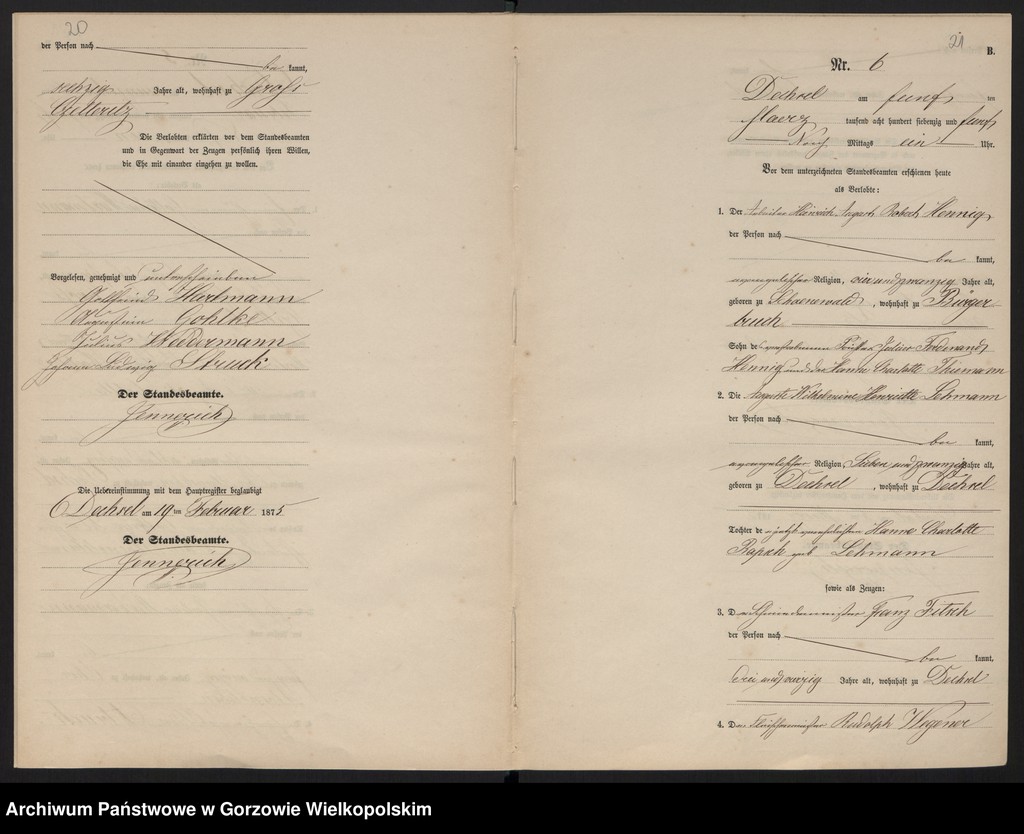 20
der Person nach
be kannt,
sechzig Jahre alt, wohnhaft zu Groß
Die Verlobten erklärten vor dem Standesbeamten
und in Gegenwart der Zeugen persönlich ihren Willen,
die Ehe mit einander eingehen zu wollen.
Vorgelesen, genehmigt und unterschrieben
Gottfried Hartmann
Gohlke
Julius Weddermann
Johann Ludwig Struck
Der Standesbeamte.
Jennerich
Die Uebereinstimmung mit dem Hauptregister beglaubigt
Dechsel am 19 ten Februar 1875
Der Standesbeamte.
Jennerich
21
B.
Nr. 6
Dechsel am fünf ten
Maerz tausend acht hundert siebenzig und fünf
Nach Mittags ein Uhr.
Vor dem unterzeichneten Standesbeamten erschienen heute
als Verlobte:
1. Der Arbeiter Heinrich August Robert Hennig
der Person nach
be kannt,
evangelischer Religion, vierundzwanzig Jahre alt,
geboren zu Schoenewald, wohnhaft zu Bürger
bruch
Sohn des verstorbenen Julius Ferdinand
Hennig und der Hanne Charlotte Thiemann
2. Die Auguste Wilhelmine Henriette Lehmann
der Person nach
be kannt,
evangelischer Religion, Sieben und zwanzig Jahre alt,
geboren zu Dechsel, wohnhaft zu Dechsel
Tochter der jetzt verehelichten Hanne Charlotte
Rapsch geb Lehmann
sowie als Zeugen:
3. Der Schneidermeister Franz Fitsch
der Person nach
be kannt,
drei und vierzig Jahre alt, wohnhaft zu Dechsel
4. Der Fleischermeister Rudolph Wegener
Archiwum Państwowe w Gorzowie Wielkopolskim